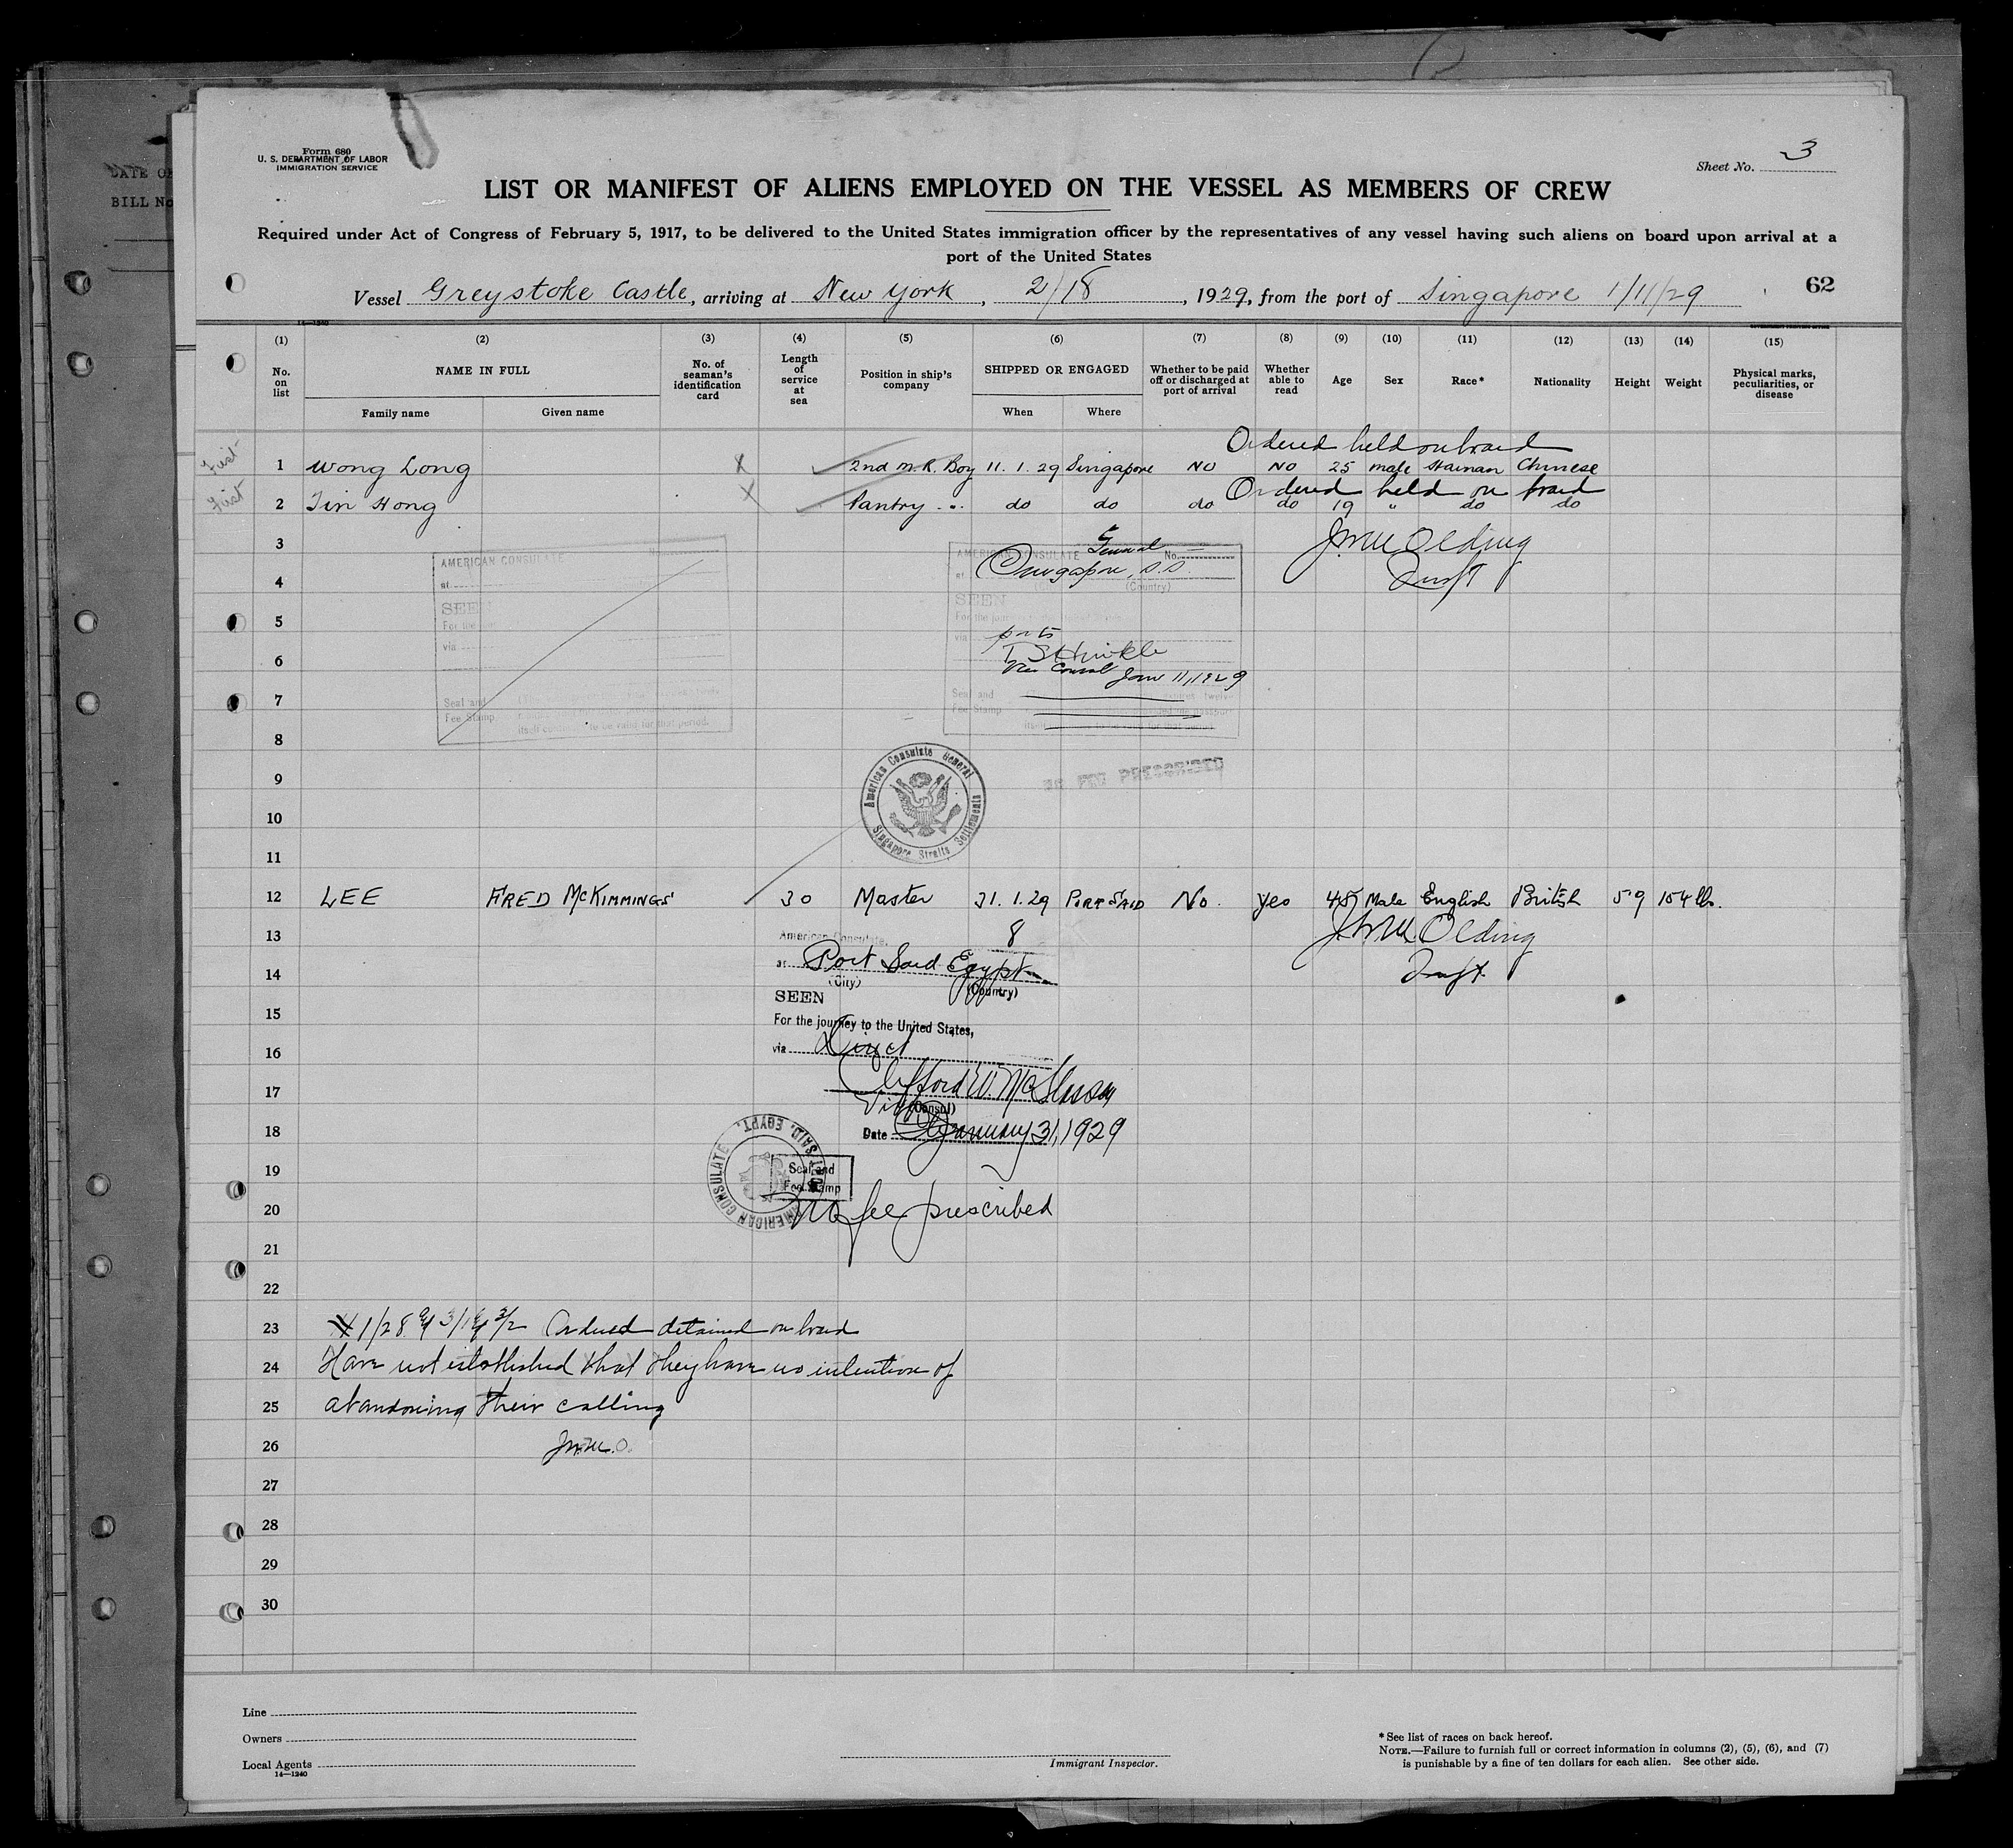 DATE OF
BILL No
Form 680
U. S. DEPARTMENT OF LABOR
IMMIGRATION SERVICE
Sheet No. 3
LIST OR MANIFEST OF ALIENS EMPLOYED ON THE VESSEL AS MEMBERS OF CREW
Required under Act of Congress of February 5, 1917, to be delivered to the United States immigration officer by the representatives of any vessel having such aliens on board upon arrival at a
port of the United States
Vessel Greystoke Castle, arriving at New York, 2/18, 1929, from the port of Singapore 1/11/29
62
14—1240
(1) (2) (3) (4) (5) (6) (7) (8) (9) (10) (11) (12) (13) (14) (15)
No. on list
NAME IN FULL
Family name Given name
No. of seaman's identification card
Length of service at sea
Position in ship's company
SHIPPED OR ENGAGED
When Where
Whether to be paid off or discharged at port of arrival
Whether able to read
Age Sex Race* Nationality Height Weight
Physical marks, peculiarities, or disease
Ordered held on board
First 1 Wong Long X 2nd M.R. Boy 11.1.29 Singapore NO NO 25 male Hainan Chinese
Ordered held on board
First 2 Tin Hong X Pantry do do do do 19 " do do
3 J.M.M. Olding
4 Inspt
AMERICAN CONSULATE
at
SEEN
For the
via
Seal and
Fee Stamp
itself continues to be valid for that period.
AMERICAN CONSULATE General No.
at Singapore, S.S.
(Country)
SEEN
For the
via ports
T S Hinkle
Vice Consul Jan 11, 1929
Seal and
Fee Stamp
5
6
7
8
American Consulate General
Singapore Straits Settlements
NO FEE PRESCRIBED
9
10
11
12 LEE FRED McKIMMINGS 30 Master 31.1.29 PORT SAID No. yes 45 Male English British 5 9 154 lbs.
13 J.M.M. Olding
14 Inspt.
American Consulate,
8
at Port Said Egypt
(City) (Country)
SEEN
For the journey to the United States,
via Direct
Clifford W. McGlasson
Vice (Consul)
Date January 31, 1929
AMERICAN CONSULATE PORT SAID, EGYPT.
Seal and
Fee Stamp
No fee prescribed
15
16
17
18
19
20
21
22
23 Ordered detained on board
24 Have not established that they have no intention of
25 abandoning their calling
26 J.M.M.O.
27
28
29
30
Line
Owners
Local Agents
14—1240
Immigrant Inspector.
* See list of races on back hereof.
NOTE.—Failure to furnish full or correct information in columns (2), (5), (6), and (7)
is punishable by a fine of ten dollars for each alien. See other side.